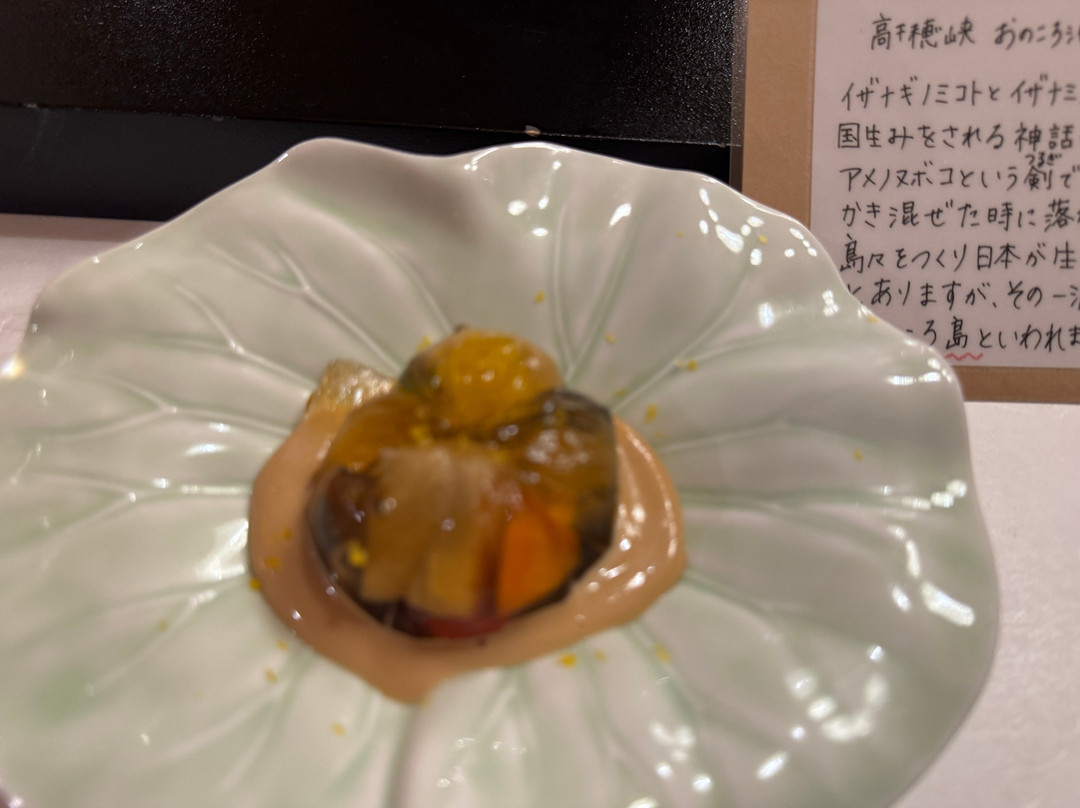 高千穂峡 おのころ
イザナギノミコトとイザナミ
国生みをされる神話
アメノヌボコという剣で
つるぎ
かき混ぜた時に落
島々をつくり日本が生
とありますが、その一
ろ島といわれま